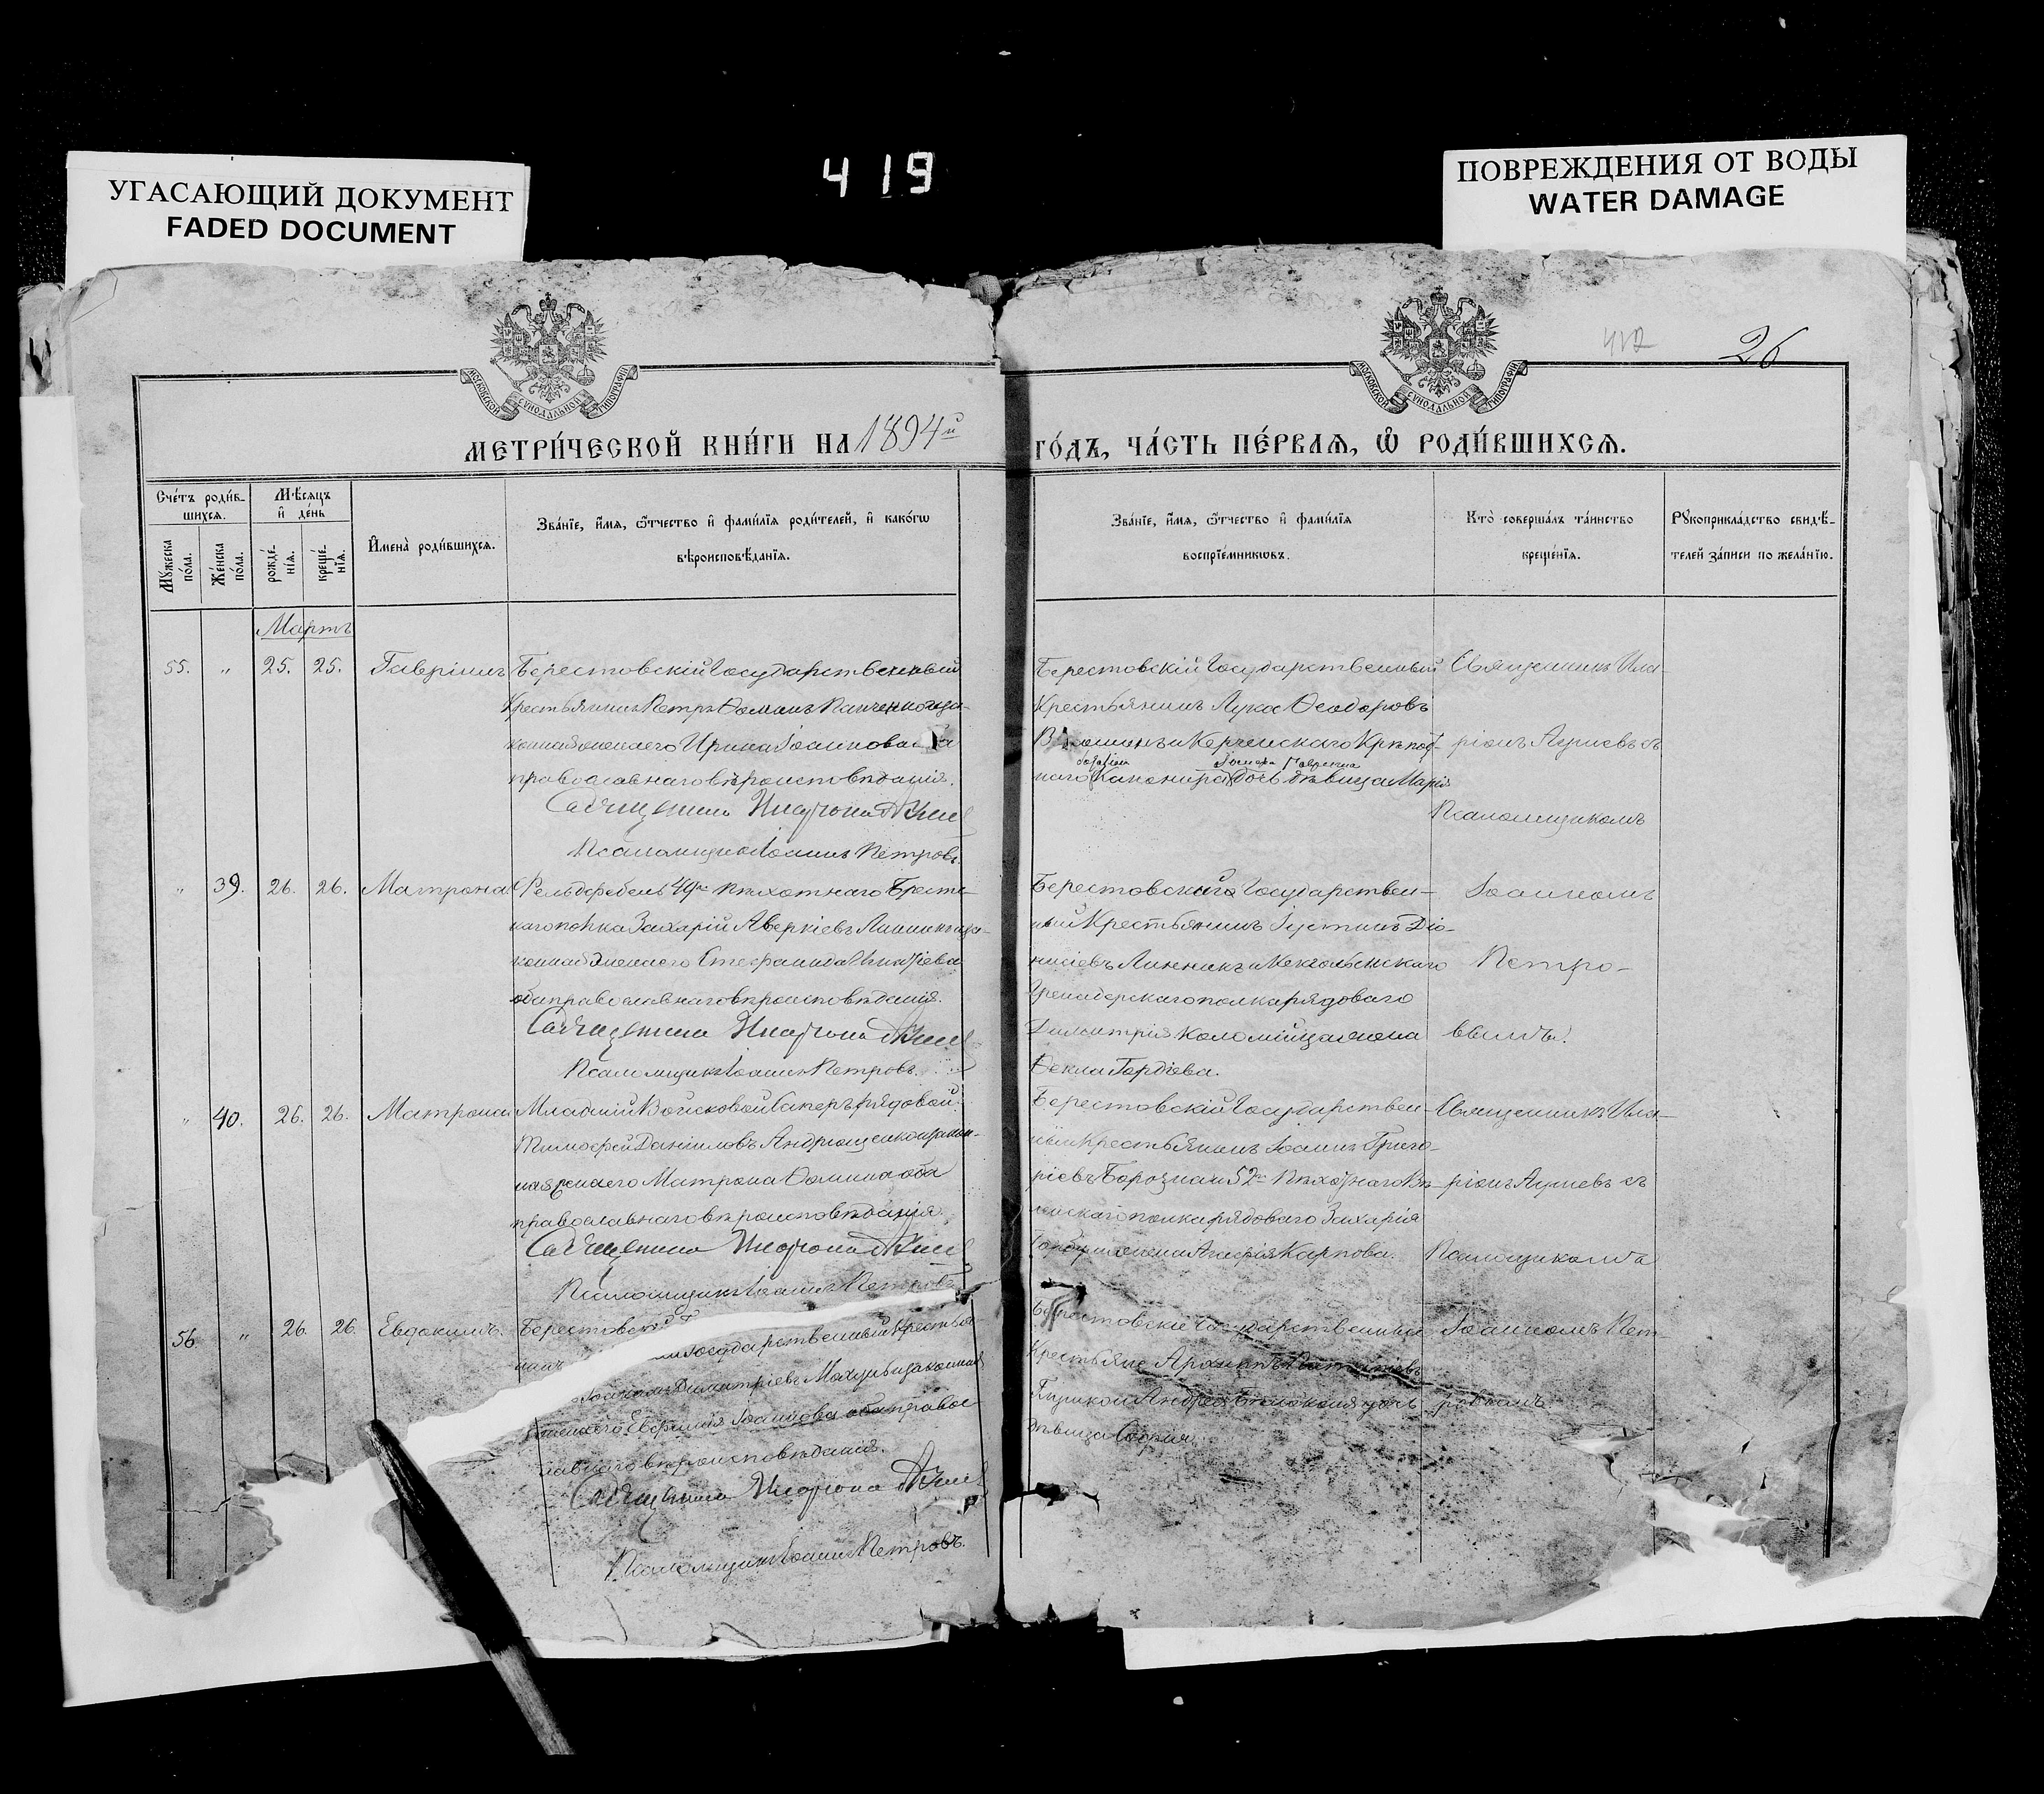 УГАСАЮЩИЙ ДОКУМЕНТ
FADED DOCUMENT
419
ПОВРЕЖДЕНИЯ ОТ ВОДЫ
WATER DAMAGE
МОСКОВСКОЙ СУНОДАЛЬНОЙ ТИПОГРАФІИ
МОСКОВСКОЙ СУНОДАЛЬНОЙ ТИПОГРАФІИ
26
МЕТРИ́ЧЕСКОЙ КНИ́ГИ НА 1894й
ГО́ДЪ, ЧА́СТЬ ПЕ́РВАЯ, Ѽ РОДИ́ВШИХСЯ.
Сче́тъ роди́в-
шихся.
Мѣ́сяцъ
и҆ де́нь
Мꙋ́жеска по́ла.
Же́нска по́ла.
рожде́-нїѧ.
креще́-нїѧ.
И҆мена̀ роди́вшихся.
Зва́нїе, и҆́мѧ, ѻ҆́тчество и҆ фами́лїѧ роди́телей, и҆ како́гѡ
вѣроисповѣ́данїѧ.
Зва́нїе, и҆́мѧ, ѻ҆́тчество и҆ фами́лїѧ
воспрїе́мникѡвъ.
Кто̀ соверша́лъ та́инство
креще́нїѧ.
Рꙋкоприкла́дство свидѣ́-
телей за́писи по жела́нїю.
Мартъ
55. „ 25. 25. Гавріилъ Берестовскій Государственный
Крестьянинъ Петръ Ѳоминъ Панченко и за-
конная жена его Ирина Іоаннова
православнаго вѣроисповѣданія.
Священникъ Иларіонъ
Псаломщикъ Іоаннъ Петровъ.
Берестовскій Государственный
Крестьянинъ Лука Ѳеодоровъ
и Керченскаго Крѣпост-
наго дочь дѣвица Марія
Священникъ Ила-
ріонъ съ
Псаломщикомъ
„ 39. 26. 26. Матрона Фельдфебель 49го пѣхотнаго Брест-
каго полка Захарій Аверкіевъ Линникъ и за-
конная жена его
оба православнаго вѣроисповѣданія.
Священникъ Иларіонъ
Псаломщикъ Іоаннъ Петровъ.
Берестовскаго Государствен-
ный Крестьянинъ Іустинъ Діо-
нисіевъ Линникъ и
Гренадерскаго полка рядоваго
Димитрія Коломійца жена
Ѳекла Гордіева.
Іоанномъ
Петро-
вымъ.
„ 40. 26. 26. Матрона Младшій Войсковой Саперъ рядовой
Тимофей Даніиловъ Андрющенко и закон-
ная жена его Матрона Ѳомина оба
православнаго вѣроисповѣданія.
Священникъ Иларіонъ
Псаломщикъ Іоаннъ Петровъ
Берестовскій Государствен-
ный Крестьянинъ Іоаннъ Григо-
ріевъ Борозна и 52го Пѣхотнаго Ви-
ленскаго полка рядоваго Захарія
жена Карпова.
Священникъ Ила-
ріонъ съ
Псаломщикомъ
56. „ 26. 26. Евдокимъ. Берестовскій
Государственный Крестья-
нинъ Димитріевъ и законная
жена его Евфимія Іоаннова оба правос-
лавнаго вѣроисповѣданія.
Священникъ Иларіонъ
Псаломщикъ Іоаннъ Петровъ.
Берестовскіе Государственные
Крестьяне
Андрея дочь
дѣвица Софія.
Іоанномъ Пет-
ровымъ